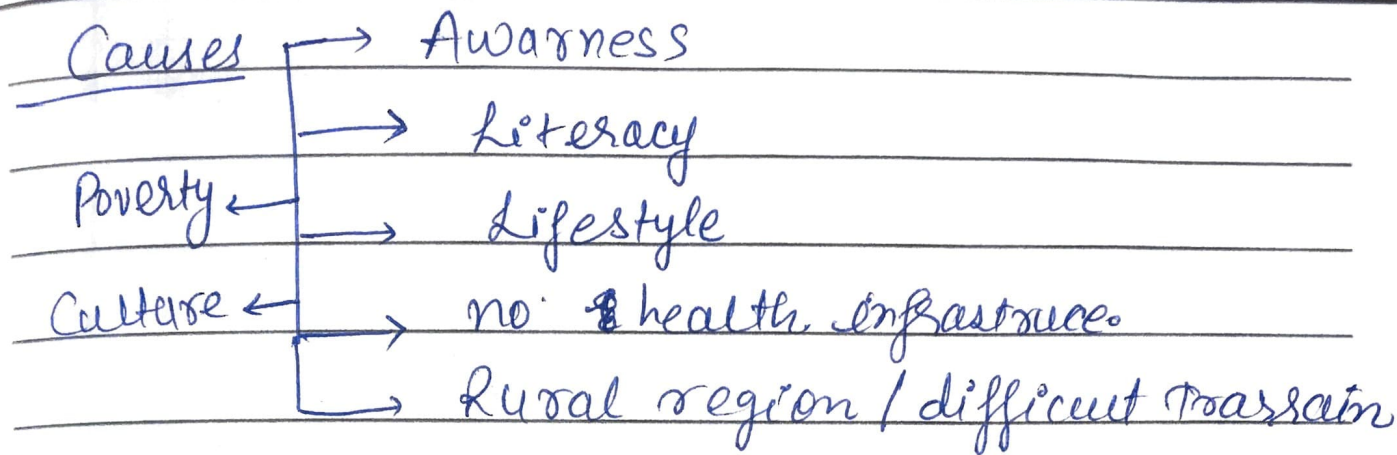 Causes → Awarness
→ Literacy
Poverty ←
→ Lifestyle
Culture ←
→ no health infrastruce.
→ Rural region / difficut Trassain